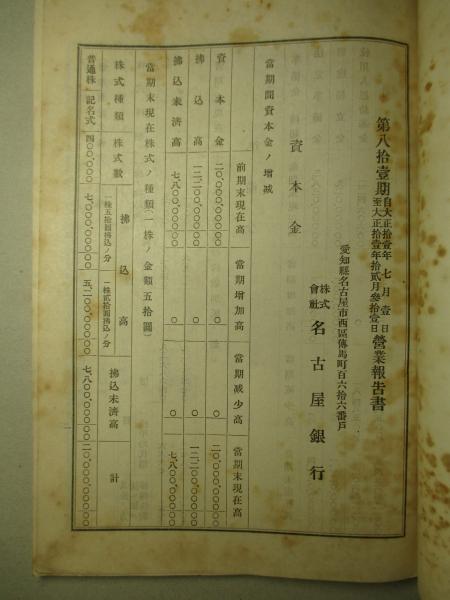 第八拾壹期
自大正拾壹年七月壹日
至大正拾壹年拾貳月參拾壹日
營業報告書
愛知縣名古屋市西區傳馬町百六拾六番戸
株式會社名古屋銀行
資本金
當期間資本金ノ增減
前期末現在高 當期增加高 當期減少高 當期末現在高
資本金 二〇、〇〇〇、〇〇〇 〇 〇 二〇、〇〇〇、〇〇〇
拂込高 一二、二〇〇、〇〇〇 〇 〇 一二、二〇〇、〇〇〇
拂込未濟高 七、八〇〇、〇〇〇 〇 〇 七、八〇〇、〇〇〇
當期末現在株式ノ種類(一株ノ金額五拾圓)
株式種類 株式數 拂込高 拂込未濟高 計
一株五拾圓拂込ノ分 一株貳拾圓拂込ノ分
普通株 記名式 四〇〇、〇〇〇 七、〇〇〇、〇〇〇 五、二〇〇、〇〇〇 七、八〇〇、〇〇〇 二〇、〇〇〇、〇〇〇